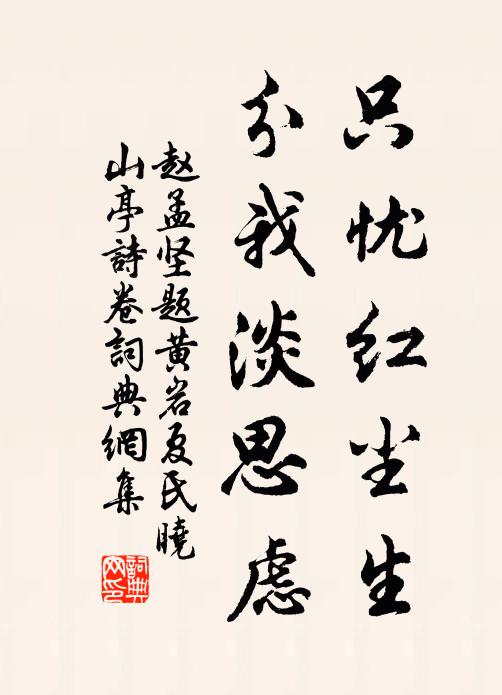 只忧红尘生
分我淡思虑
赵孟坚题黄岩夏氏晓
山亭詩卷詞典網集
詞典
网印